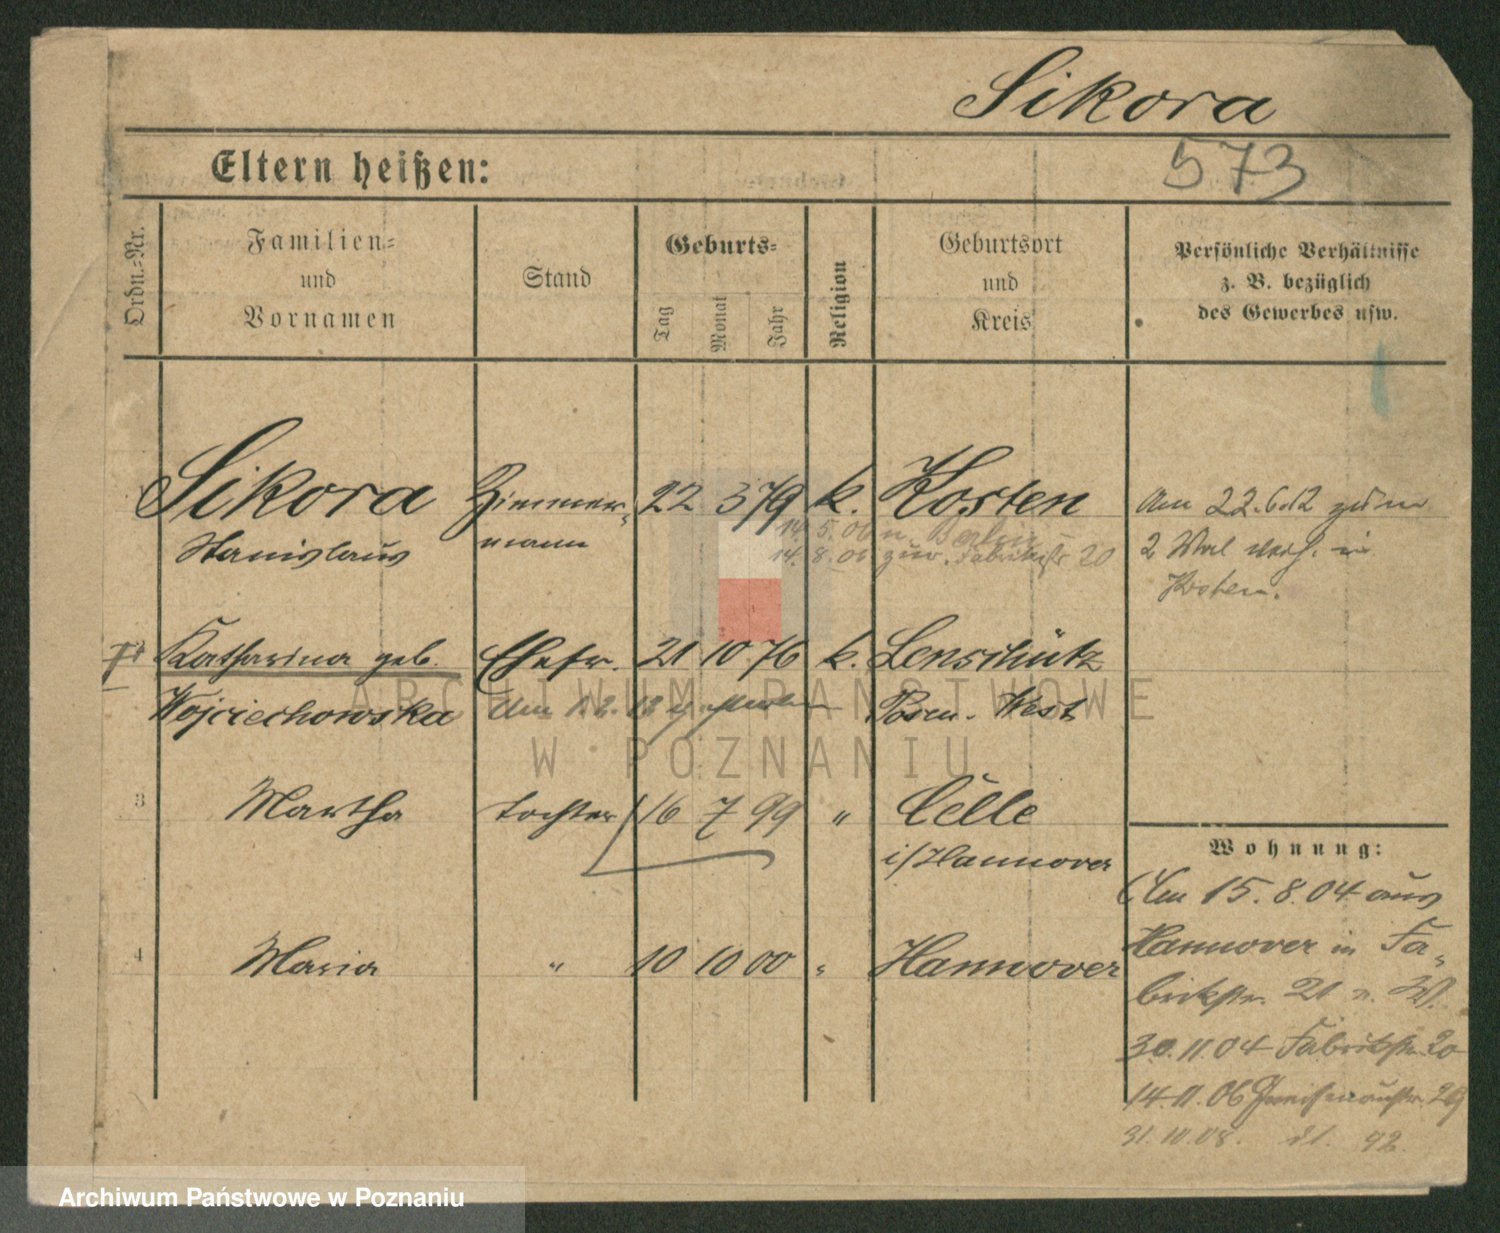 Sikora
573
Eltern heißen:
Ordn.-Nr.
Familien-
und
Vornamen
Stand
Geburts-
Tag
Monat
Jahr
Religion
Geburtsort
und
Kreis
Persönliche Verhältnisse
z. B. bezüglich
des Gewerbes usw.
Sikora Zimmer- 22 3 79 k. Kosten
Stanislaus mann
14. 5. 06 n. Berlin
14. 8. 06 zur. Fabrikstr 20
Am 22.6.12 zum
2 Mal verh. in
Kosten.
Katharina geb. Ehefr. 21 10 76 k. Lenschütz
Wojciechowska Am 1.2. 12 gestorben Posen. West
3 Martha Tochter 16 7 99 " Celle
i/Hannover
4 Maria " 10 10 00 " Hannover
Wohnung:
Am 15. 8. 04 aus
Hannover in Fa-
brikstr. 21 n. W.
30. 11. 04 Fabrikstr. 20
14. 11. 06 Gneisenaustr. 29
31. 10. 08. 92.
ARCHIWUM PAŃSTWOWE
W POZNANIU
Archiwum Państwowe w Poznaniu